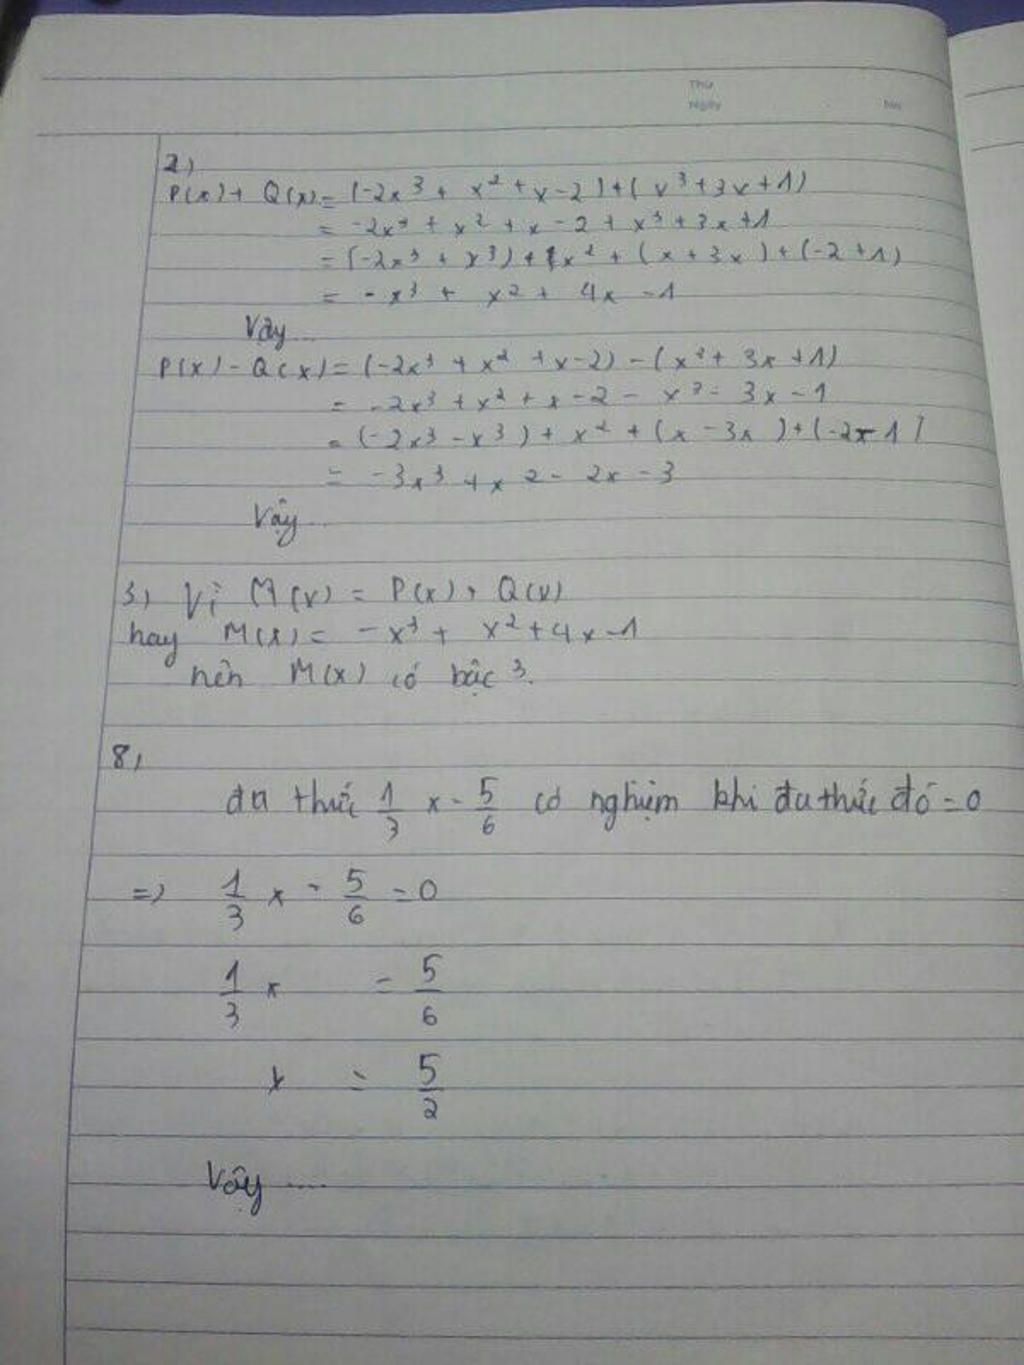 Thứ
Ngày No
2)
P(x) + Q(x) = (-2x³ + x² + x - 2) + (x³ + 3x + 1)
= -2x³ + x² + x - 2 + x³ + 3x + 1
= (-2x³ + x³) + x² + (x + 3x) + (-2 + 1)
= -x³ + x² + 4x - 1
Vậy...
P(x) - Q(x) = (-2x³ + x² + x - 2) - (x³ + 3x + 1)
= -2x³ + x² + x - 2 - x³ - 3x - 1
= (-2x³ - x³) + x² + (x - 3x) + (-2 - 1)
= -3x³ + x² - 2x - 3
Vậy...
3) Vì M(x) = P(x) + Q(x)
hay M(x) = -x³ + x² + 4x - 1
nên M(x) có bậc 3.
8)
đa thức 1/3 x - 5/6 có nghiệm khi đa thức đó = 0
=> 1/3 x - 5/6 = 0
1/3 x = 5/6
x = 5/2
Vậy ....